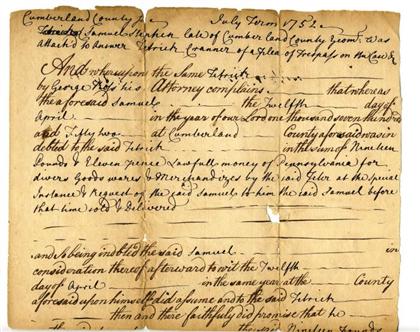 Cumberland County July Term 1752
Samuel Stephen Late of Cumberland County Yeom. was
Attach'd to Answer Patrick Cranner of a Plea of Trespass on the Case &
And whereupon the Same Patrick
by George Ross his Attorney complains that whereas
the aforesaid Samuel the Twelfth day of
April in the year of our Lord one thousand seven hundred
and Fifty two at Cumberland County aforesaid was in
debted to the said Patrick in the sum of Nineteen
Pounds & Eleven pence Lawfull money of Pennsylvania for
divers Goods wares & Merchandizes by the said at the special
Instance & Request of the said Samuel to him the said Samuel before
that time sold & delivered
and so being indebted the said Samuel in
consideration thereof afterward to wit the Twelfth
day of April in the same year at the County
aforesaid upon himself did assume and to the said Patrick
then and there faithfully did promise that he
the said Nineteen Pounds